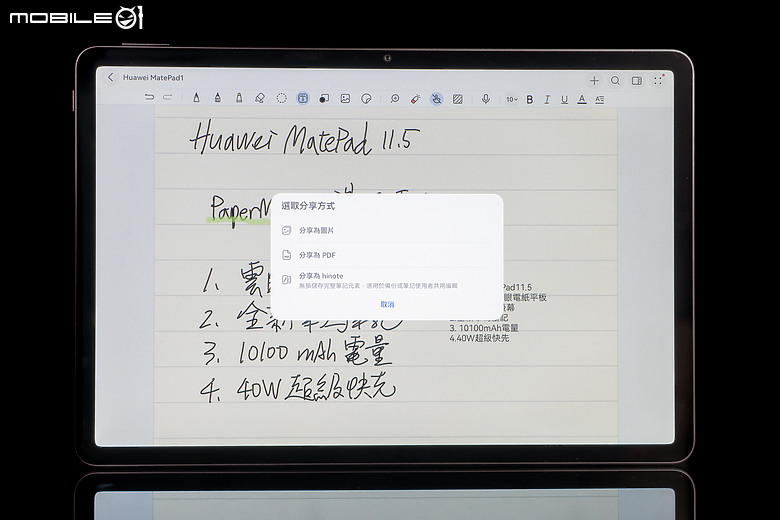 MOBILE01
Huawei MatePad1
10
B I U A
Huawei MatePad 11.5
選取分享方式
分享為圖片
分享為 PDF
分享為 hinote
無損儲存完整筆記元素，適用於備份或筆記使用者共用編輯
取消
1. 雲
2. 全新筆
3. 10100 mAh 電量
4. 40W 超級快充
Pad11.5
眼電紙平板
3. 10100mAh電量
4.40W超級快充